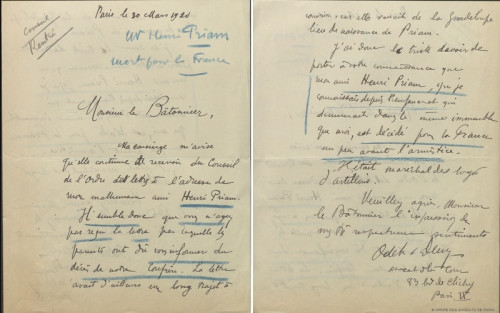 Paris le 30 Mars 1920
Mr Henri Priam
mort pour la France
Monsieur le Bâtonnier,
Ma concierge m'avise
qu'elle continue à recevoir du Conseil
de l'Ordre des lettres à l'adresse de
mon malheureux ami Henri Priam.
Il semble donc que vous n'ayez
pas reçu la lettre par laquelle les
parents ont dû vous informer du
décès de notre confrère. La lettre
avait d'ailleurs un long trajet à
courir, car elle venait de la Guadeloupe
lieu de naissance de Priam.
J'ai donc le triste devoir de
porter à votre connaissance que
mon ami Henri Priam, que je
connaissais depuis l'enfance et qui
demeurait dans le même immeuble
que moi, est décédé pour la France
un peu avant l'armistice.
Il était maréchal des logis
d'artillerie.
Veuillez agréer, Monsieur
le Bâtonnier l'expression de
mes respectueux sentiments
avocat à la Cour
83 bd de Clichy
Paris IX